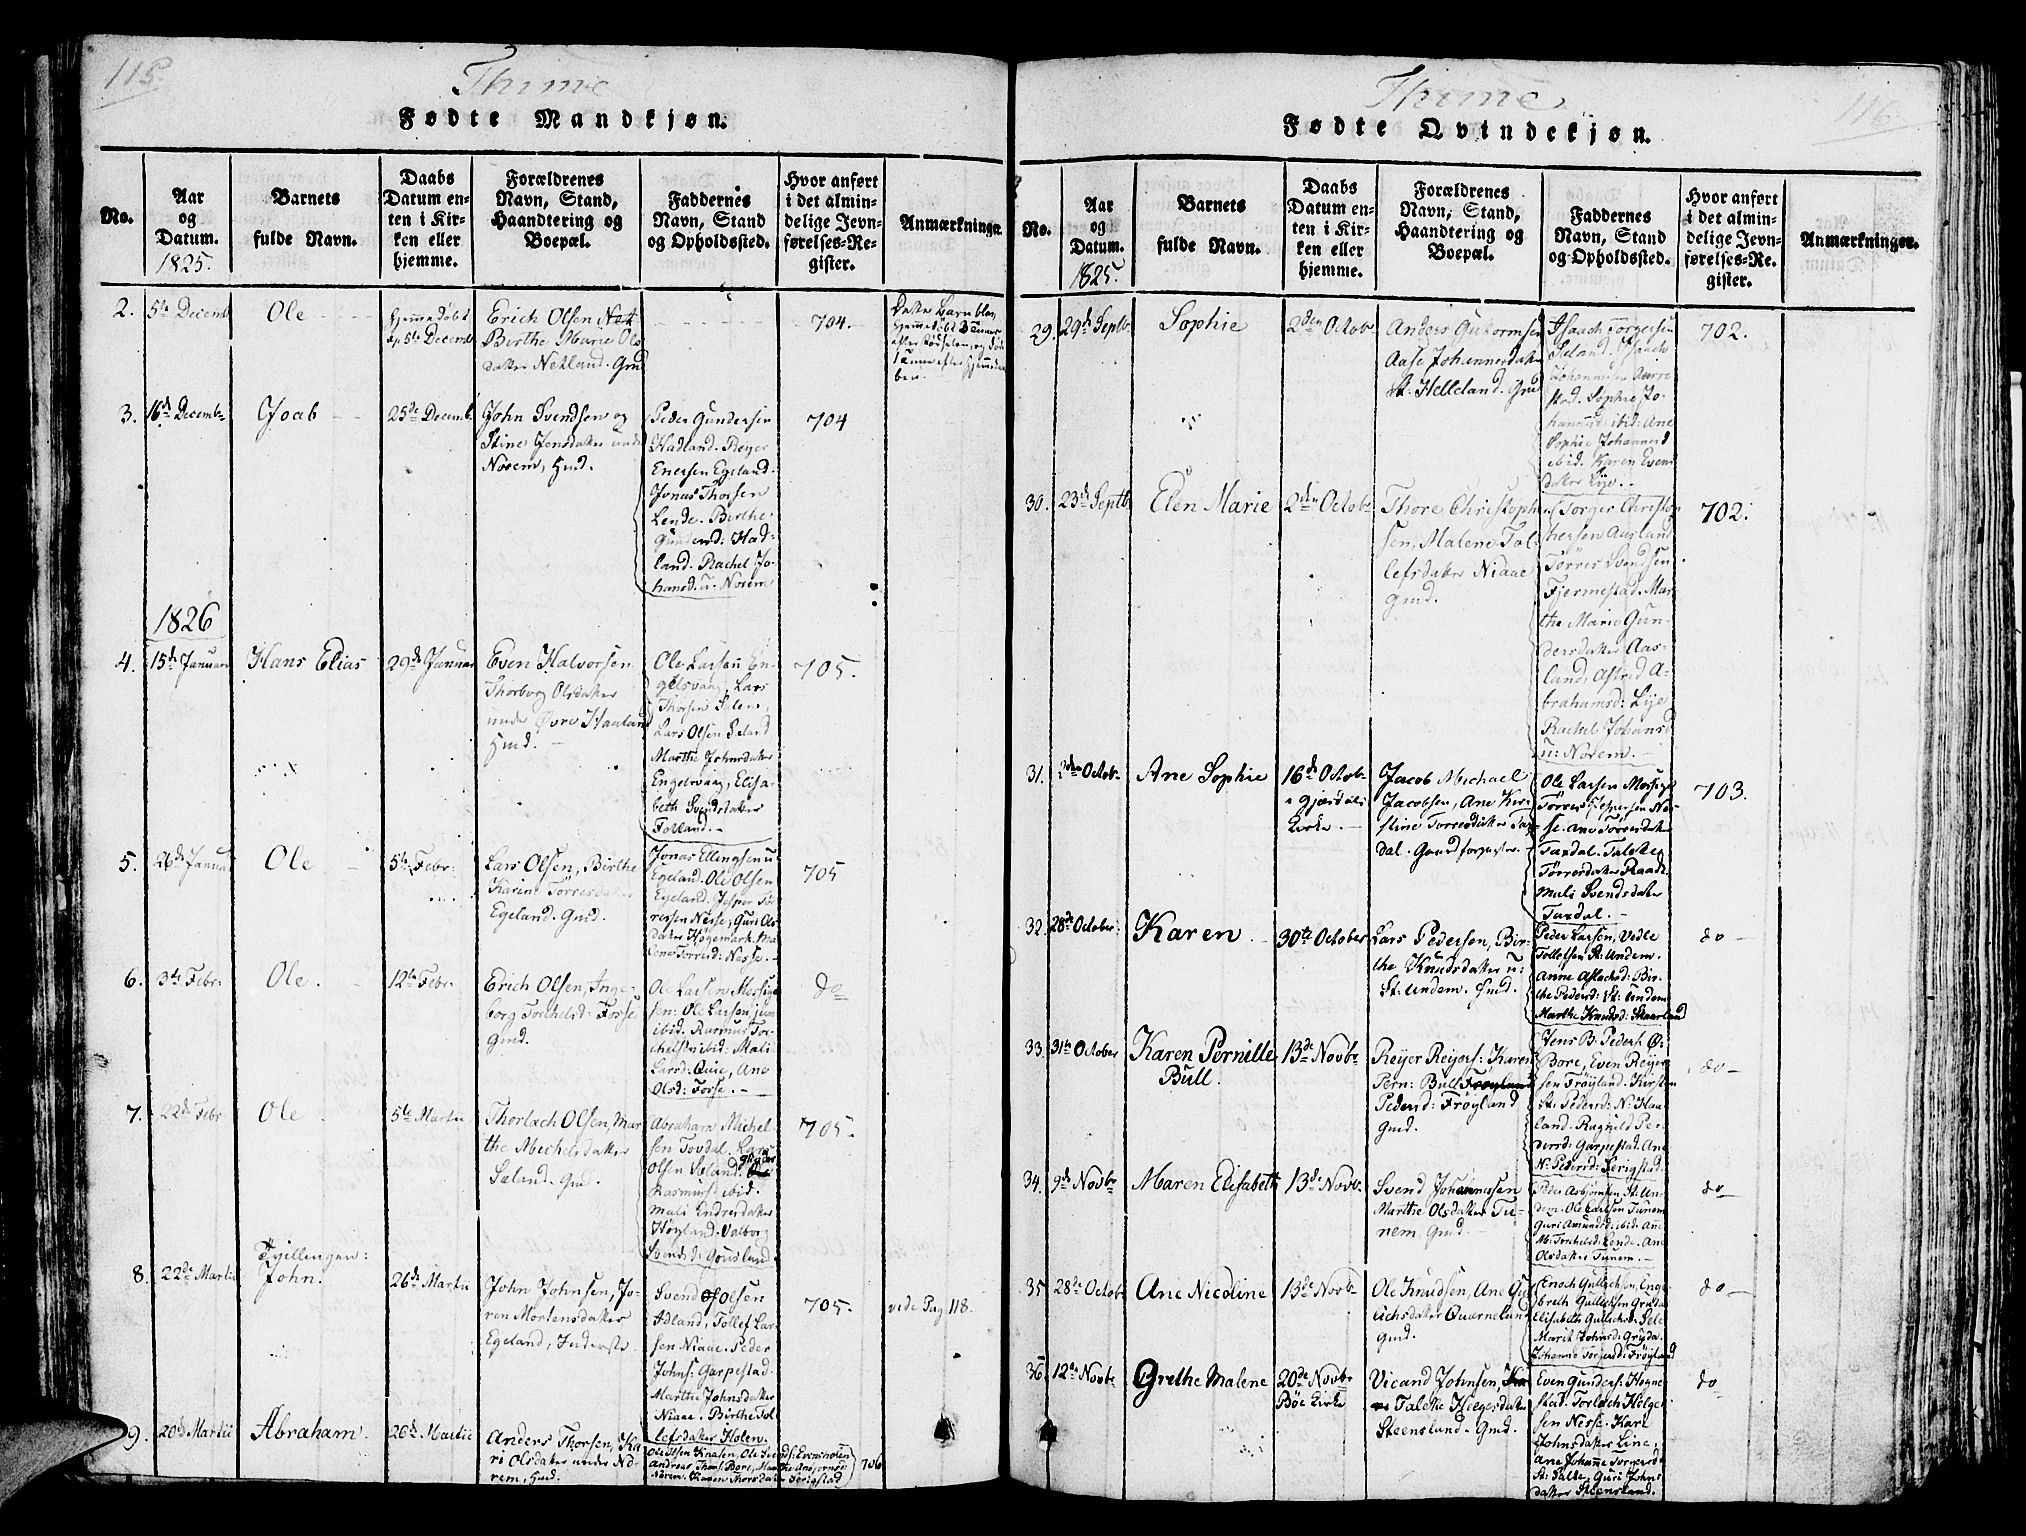 115.
Thime
Fødte Mandkjøn.
No.
Aar
og
Datum.
1825.
Barnets
fulde Navn.
Daabs
Datum en-
ten i Kir-
ken eller
hjemme.
Forældrenes
Navn, Stand,
Haandtering og
Boepæl.
Faddernes
Navn, Stand
og Opholdssted.
Hvor anført
i det almin-
delige Jevn-
førelses-Re-
gister.
Anmærkninger.
2.
5te Decemb
Ole
Hjemmedøbt
d. 5te Decemb
Erich Olsen
Birthe Marie Ols
datter Netland. Gmd
704.
3.
16de Decembr
Joab
25de Decemb
John Svendsen og
Stine Jensdatter under
Norem, Hmd.
Peder Gundersen
Hadland. Reyer
Enersen Egeland.
Jonas Thorsen
Lende. Birthe
Gundersd: Had-
land. Rachel Jo-
hansd. u: Norem
704
1826
4.
15de Januari
Hans Elias
29de Januar
Even Halvorsen
Thorborg Olsdatter
under Øvre Haaland
Hmd.
Ole Larsen En-
gelsvaag, Lars
Thorsen Selene,
Lars Olsen Seland
Marthe Johnsdatter
Engelsvaag, Elisa-
beth Svendsdatter
Folland.
705.
5.
26de Januar
Ole
5te Febr:
Lars Olsen, Birthe
Karine Tørresdatter
Egeland. Gmd.
Jonas Ellingsen u
Egeland. Ole Olsen
Egeland. Jesper Tør-
ressen Nesse, Guri Ols-
datter Høgemark. Ma-
lene Torresd: Nesse.
705
6.
3de Febr:
Ole.
12te Febr.
Erich Olsen, Inge-
borg Torkelsd: Fosse
Gmd.
Ole Larsen Mossige
sen: Ole Larsen jun
ibid. Rasmus Tor-
chelsen ibid: Mali
Larsd: Qvie, Ane
Olsd: Fosse.
do
7.
22de Febr
Ole
5te Martii
Thorlach Olsen, Mar
the Michelsdatter
Sæland. Gmd.
Abraham Michel-
sen Tovdal. Lars
Olsen Sæland.
Rasmusd: ibid.
Mali Endresdatter
Høyland. Valborg
Svendsd: Gousland.
705.
8.
22de Martii
Tvillinger:
John.
26de Martii
John Johnsen, Jo-
ren Mortensdatter
Egeland, Inderste.
Svend Olsen
Adland, Tollef Lar-
sen Niaae. Peder
Johns: Garpestad.
Marthe Johnsdatter
Niaae. Birthe Tol-
lefsdatter Holen.
705.
vide Pag 118.
9.
20de Martii
Abraham.
26de Martii
Anders Thorsen, Ka
ri Olsdatter under No
rem, Hmd.
706
116.
Thime
Fødte Qvindekjøn.
No.
Aar
og
Datum.
1825.
Barnets
fulde Navn.
Daabs
Datum en-
ten i Kir-
ken eller
hjemme.
Forældrenes
Navn, Stand,
Haandtering og
Boepæl.
Faddernes
Navn, Stand
og Opholdssted.
Hvor anført
i det almin-
delige Jevn-
førelses-Re-
gister.
Anmærkninger.
29.
29de Septb
Sophie
2den Octob
Anders Guttormsen
Aase Johannesdatter
St. Helleland. Gmd
Isaach Torgersen
Seland. Isaach
Johannesen Aarre
stad. Sophie Jo-
hannesd: ibid: Ane
Sophie Johannesd
ibid. Karen Evens
datter Lye.
702.
30.
23de Septb
Elen Marie
2den Octob
Thore Christopher
sen, Malene Tol-
lefsdatter Niaae
Gmd.
Torger Christo-
phersen Aasland
Tørres Svendsen
Fjermestad. Mar
the Marie Gun-
dersdatter Aas-
land, Astrid A-
brahamsd: Lye
Rachel Johansd
u: Norem.
702.
31.
2den Octob.
Ane Sophie
16de Octob
i Gjæsdals
Kirke.
Jacob Michael
Jacobsen, Ane Kir-
stine Torresdatter Tax
dal. Gaardforpagter.
Ole Larsen Mossige
Tørres Jespersen Nes-
se. Ane Tørresdatter
Taxdal. Taletha
Tørresdatter Raade
Mali Svendsdatter
Taxdal.
703.
32.
28de October
Karen
30te October
Lars Pedersen, Bir-
the Knudsdatter u:
St: Undem. Hmd.
Peder Larsen, Vedle
Tollefsen St: Undem.
Anne Aslachsd: Bir-
the Pedersd: St: Undem
Marthe Knudsd: Skaarland
do
33.
31te October
Karen Pernille
Bull.
13de Novb
Reyer Reyers: Karen
Pern: Bull Frøyland
Pedersd: Frøyland
Gmd.
Jens B. Peders: Ø:
Bore, Even Reyer-
sen Frøyland. Kirsten
St: Pedersd: N: Haa-
land. Ragnild Pe-
dersd: Garpestad. Ane
N: Pedersd: Serigstad.
do
34.
9de Novb
Maren Elisabeth
13de Novb
Svend Johannessen
Marthe Olsdatter Tu-
nem Gmd.
Peder Asbjørnsen St: Un-
dem. Ole Carlsen Tunem
Guri Amundsd: ibid. Ane
M: Torchelsd: Lende. Ane
Olsdatter Tunem.
do
35
28de Octob
Ane Nicoline
13de Novb
Ole Knudsen, Ane Gul
lichsdatter Quarneland
Gmd.
Enoch Gullichsen, Enge-
breth Gullichsen Gruda
Elisabeth Gullichsd: Sele
Marit Johnsd: Gryda.
Johanne Torgersd: Frøyland
do
36.
12te Novb
Grethe Malene
20de Novb
Bøe Kirke
Vicand Johnsen,
Taletke Helgesdatter
Steensland. Gmd.
Even Gunders: Hogne-
stad. Torlach Helge-
sen Nesse. Kari
Johnsdatter Line,
Ane Johanne Torgersd:
St: Salte, Guri Johns-
datter Steensland.
do